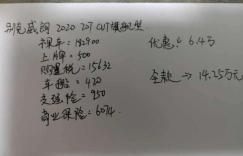 别克威朗 2020 20T CVT 领先型
裸车 = 182900
上牌 = 500
购置税 = 15632
车船 = 420
交强险 = 950
商业保险 = 6074
优惠: 6.4万
全款 → 14.25万元